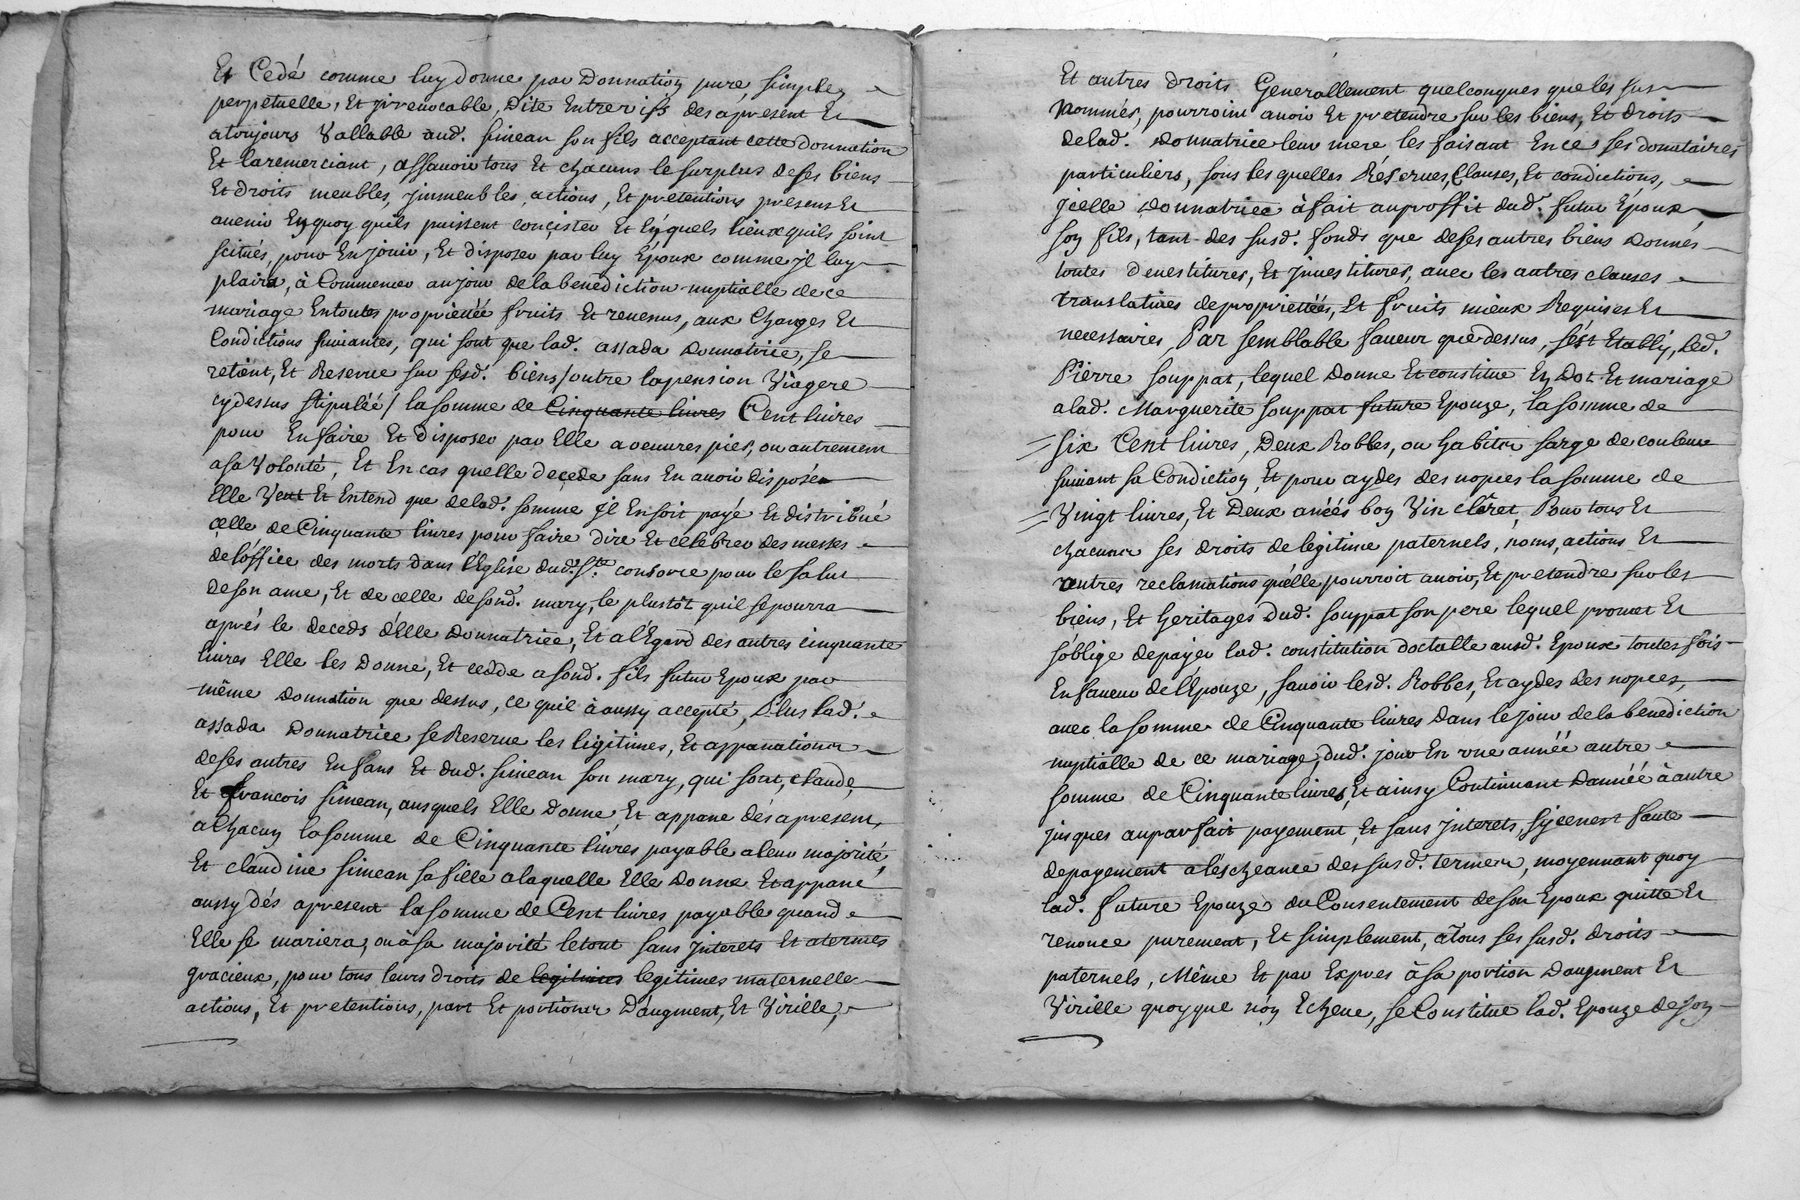 Et Cedé comme luy donne par Donnation pure, simple,
perpetuelle, Et jrrevocable, Dite Entrevifs des apresent Et
atoujours Vallable aud. simean son fils acceptant cette donnation
Et la remerciant, assavoir tous Et chacuns le surplus de ses biens
Et droits meubles, jmmeubles, actions, Et pretentions presens Et
avenir En quoy quils puissent concister Et Enquels lieux quils soint
scitués, pour En jouir, Et disposer par luy Epoux comme jl luy
plaira, à Commencer au jour de la benediction nuptialle de ce
mariage En toutes proprietéé fruits Et revenus, aux Charges Et
Condictions suivantes, qui sont que lad. assada Donnatrice, se
retient, Et Reserve sur sesd. biens / outre la pension Viagere
cydessus stipuléé / la somme de Cinquante livres Cent livres
pour En faire Et disposer par Elle a oeuvres pies, ou autrement
a sa Volonté, Et En cas quelle decede sans En avoir disposéé
Elle Veut Et Entend que delad. somme jl En soit payé Et distribué
celle de Cinquante livres pour faire dire Et celebrer des messes
de lóffice des morts dans l'Eglise dud. Ste. consorce pour le salut
de son ame, Et de celle desond. mary, le plustôt quil se pourra
aprés le deceds délle Donnatrice, Et a l'Egard des autres cinquante
livres Elle les Donne, Et cedde a sond. fils futur Epoux par
même Donnation que dessus, ce quil à aussy accepté, Plus lad.
assada Donnatrice se Reserve les legitimes, Et appanations
de ses autres Enfans Et dud. simean son mary, qui sont, claude,
Et francois simean, ausquels Elle Donne, Et appane dés apresent,
a Chacun la somme de Cinquante livres payable a leur majorité,
Et claudine simean sa fille a laquelle Elle Donne Et appane
aussy dés apresent la somme de Cent livres payable quand
Elle se mariera, ou à sa majorité le tout sans jnterets Et a termes
gracieux, pour tous leurs droits de legitimes legitimes maternelle
actions, Et pretentions, part Et portions D'augment, Et Virille,
Et autres Droits Generallement quelconques que les sus
Nommés, pourroint avoir Et pretendre sur les biens, Et Droits
de lad. Donnatrice leur mere les faisant En ce ses donataires
particuliers, sous les quelles Réserves, Clauses, Et condictions,
jcelle Donnatrice à fait au proffit dud. futur Epoux,
son fils, tant des susd. fonds que de ses autres biens Donnés
toutes Devestitures, Et jnvestitures, avec les autres clauses
translatives de proprietéés, Et fruits mieux Requises Et
necessaires, Par semblable faveur que dessus, s'ést Etably, led.
Pierre souppat, lequel Donne Et constitue En Dot Et mariage
a lad. Marguerite souppat future Epouze, la somme de
six Cent livres, Deux Robbes, ou habits sarge de couleur
suivant sa Condiction, Et pour aydes des nopces la somme de
Vingt livres, Et Deux anéés bon Vin clêret, Pour tous Et
chacuns ses droits de legitime paternels, noms, actions Et
autres reclamations quélle pourroit avoir, Et pretendre sur les
biens, Et heritages Dud. souppat son pere lequel promet Et
s'oblige de payer lad. constitution doctalle ausd. Epoux toutes fois
En faveur de l'Epouze, savoir lesd. Robbes, Et aydes des nopces,
avec la somme de Cinquante livres dans le jour de la benediction
nuptialle de ce mariage, dud. jour En une annéé autre
somme de Cinquante livres, Et ainsy Continuant Dannéé à autre
jusques au parfait payement, Et sans jnterets, sy cenest faute
de payement a léscheance des susd. termes, moyennant quoy
lad. future Epouze du Consentement de son Epoux quitte Et
renonce purement, Et simplement, à tous ses susd. droits
paternels, Même Et par Expres à sa portion Daugment Et
Virille quoyque nón Echeue, se Constitue lad. Epouze de son